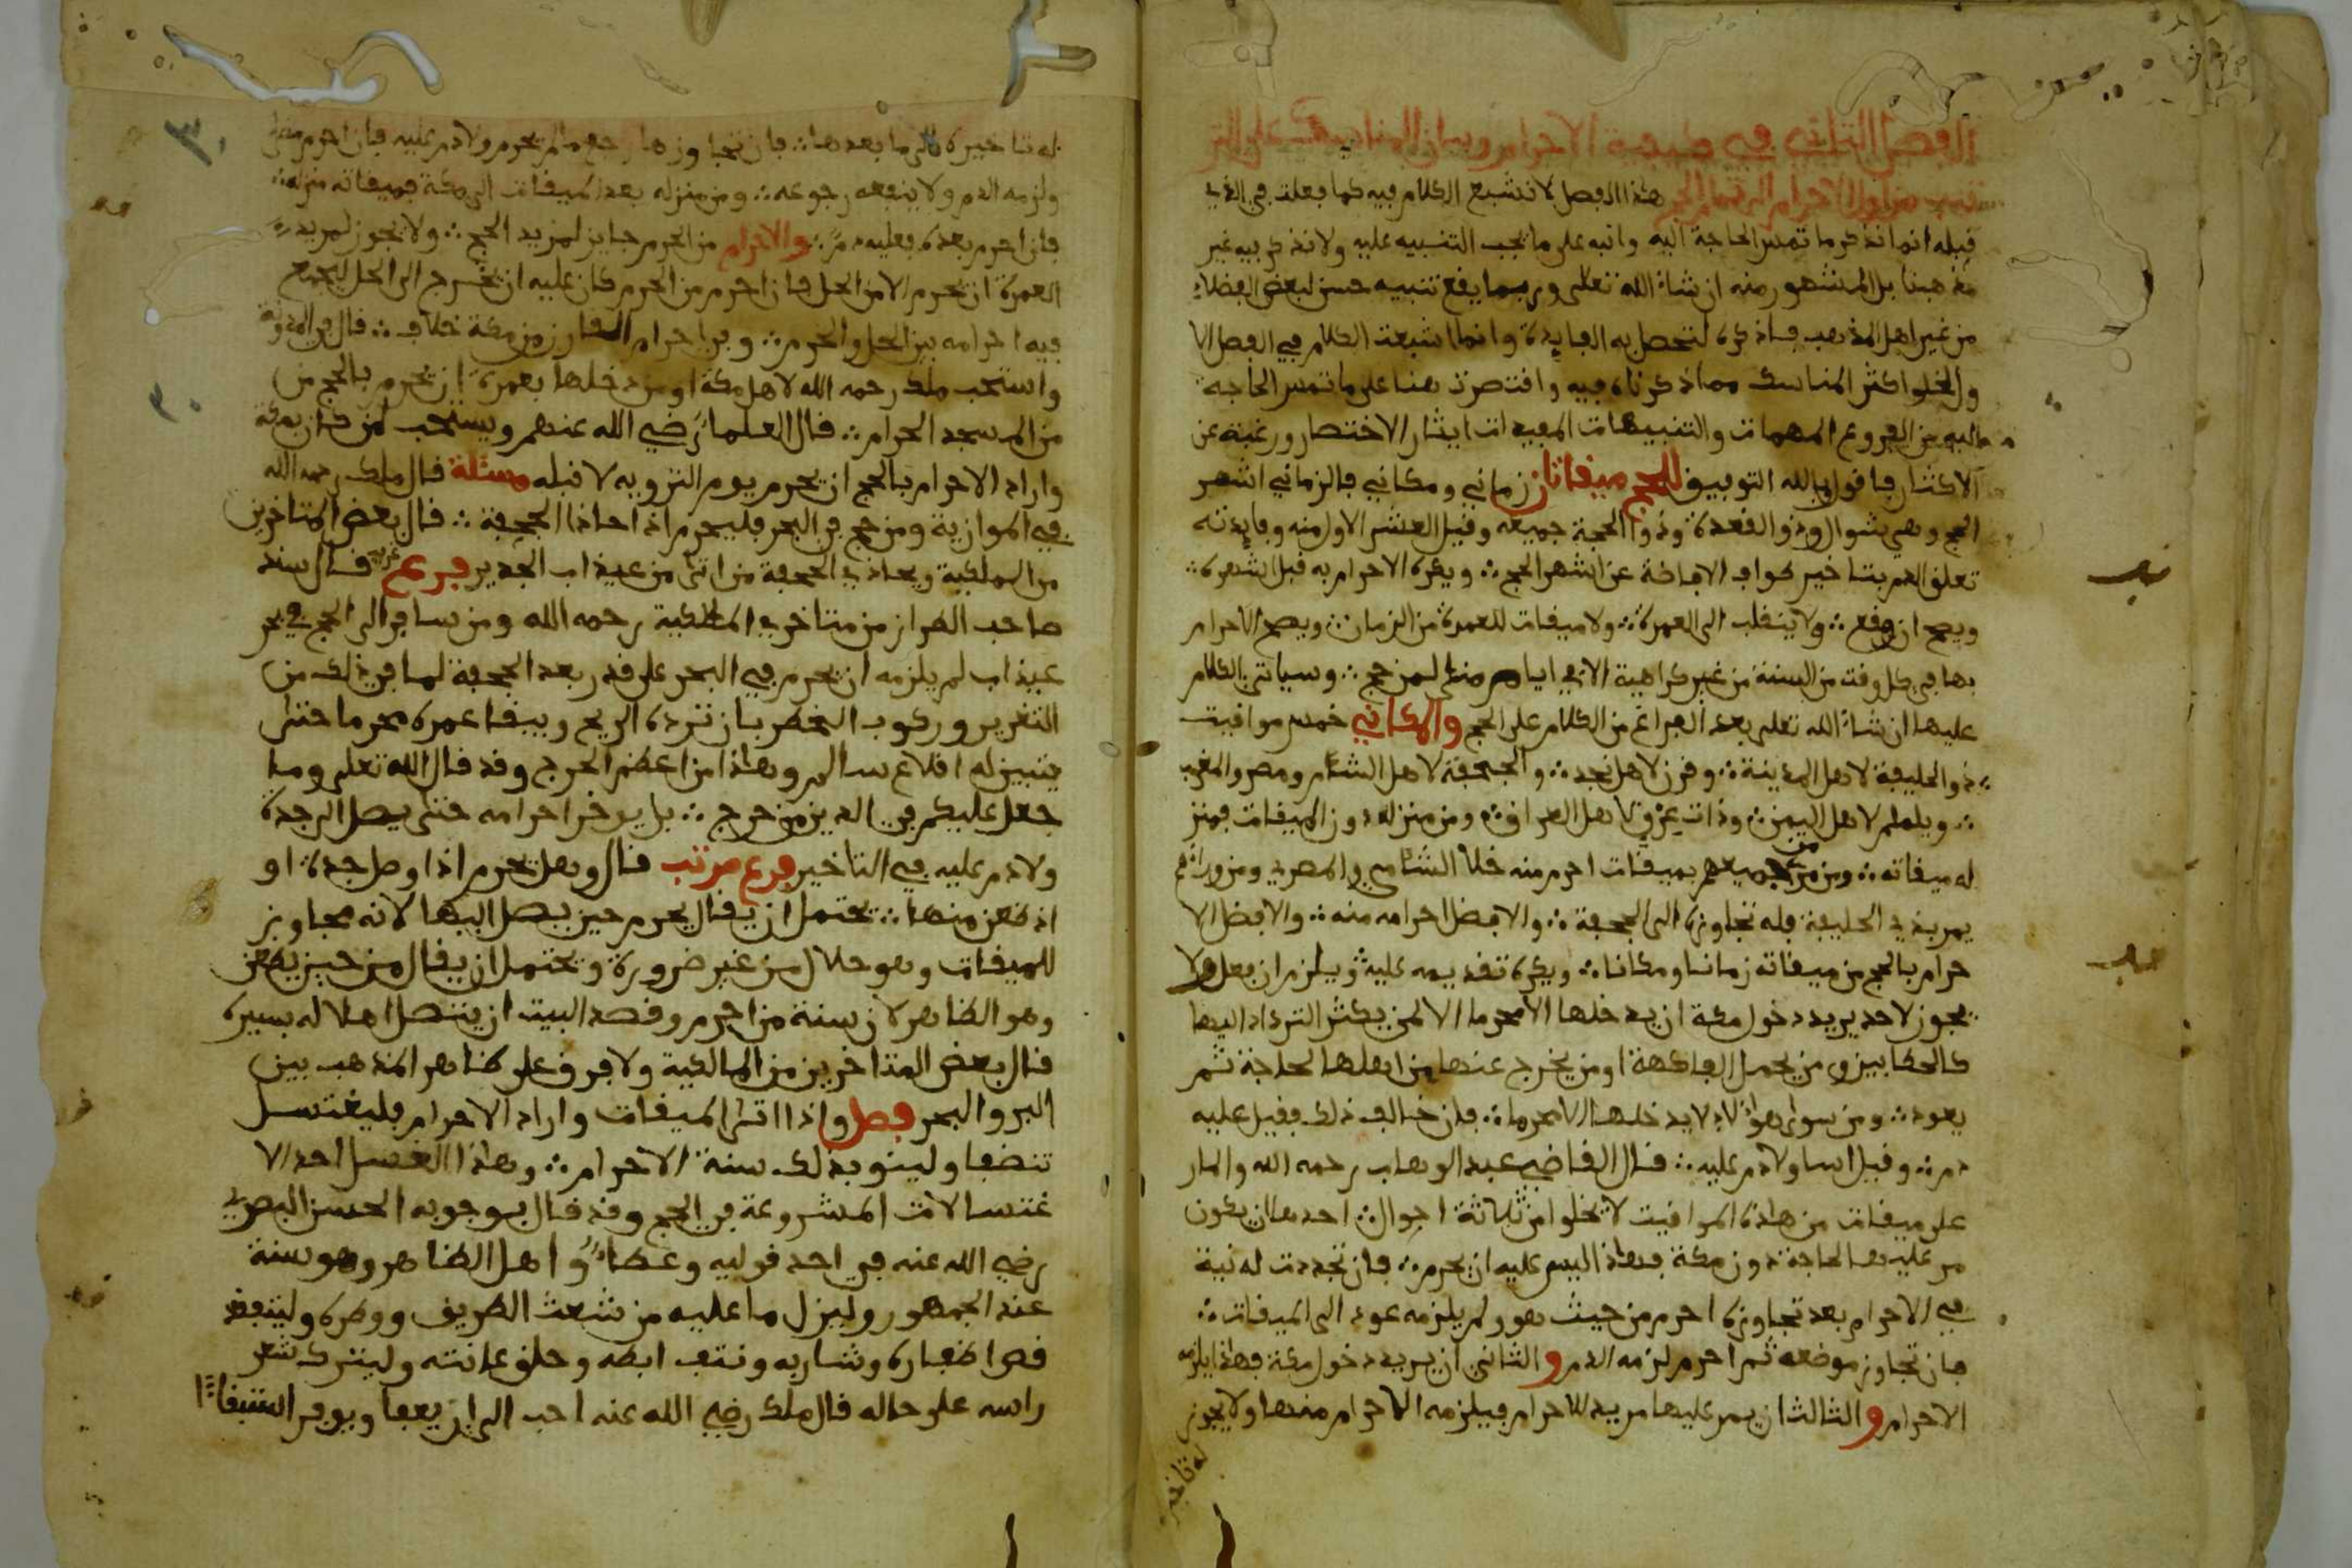 الفصل الثاني في صفة الاحرام وبيان المناسك على التر
تيب من اول الاحرام الى تمام الحج هذا الفصل لا نشبع الكلام فيه كما فعلت في الذي
قبله انما نذكر ما تمس الحاجة اليه وانبه على ما يجب التنبيه عليه ولا نذكر فيه غير
مذهبنا بل المشهور منه ان شاء الله تعلى وربما يقع تنبيه حسن لبعض الفضلاء
من غير اهل المذهب فاذكره لتحصل به الفايدة وانما اشبعت الكلام في الفصل الا
ول لخلو اكثر المناسك مما ذكرناه فيه واقتصرت هنا على ما تمس الحاجة
اليه من الفروع المهمات والتنبيهات المفيدات ايثار الاختصار ورغبة عن
الاكثار فاقول وبالله التوفيق للحج ميقاتان زماني ومكاني فالزماني اشهر
الحج وهي شوال وذو القعدة وذوا الحجة جميعه وقيل العشر الاول منه وفايدته
تعلق الدم بتاخير طواف الافاضة عن اشهر الحج ويكره الاحرام به قبل اشهره
ويصح ان وقع ولا ينقلب الى العمرة ولا ميقات للعمرة من الزمان ويصح الاحرام
بها في كل وقت من السنة من غير كراهية الا في ايام منى لمن حج وسياتي الكلام
عليها ان شاء الله تعلى بعد الفراغ من الكلام على الحج والمكاني خمس مواقيت
ذو الحليفة لاهل المدينة وقرن لاهل نجد والجحفة لاهل الشام ومصر والمغرب
ويلملم لاهل اليمن وذات عرق لاهل العراق ومن منزله دون الميقات فمنز
له ميقاته ومن مر من جميعهم بميقات احرم منه خلا الشامي والمصري ومن وراءهم
يمر بذي الحليفة فله تجاوزه الى الجحفة والافضل احرامه منه والافضل الا
حرام بالحج من ميقاته زمانا ومكانا ويكره تقديمه عليه ويلزم ان فعل ولا
يجوز لاحد يريد دخول مكة ان يدخلها الا محرما الا لمن يكثر الترداد اليها
كالحطابين ومن يحمل الفاكهة او من يخرج عنها من اهلها لحاجة ثم
يعود ومن سوى هؤلاء لا يدخلها الا محرما فان خالف ذلك فقيل عليه
دم وقيل اسا ولا دم عليه قال القاضي عبد الوهاب رحمه الله والمار
على ميقات من هذه المواقيت لا يخلوا من ثلاثة احوال احدها ان يكون
مر عليه لحاجة دون مكة فهذا ليس عليه ان يحرم فان تجددت له نية
في الاحرام بعد تجاوزه احرم من حيث هو ولم يلزمه عود الى الميقات
فان تجاوز موضعه ثم احرم لزمه الدم والثاني ان يريد دخول مكة فهذا يلزمه
الاحرام والثالث ان يمر عليها مريد للاحرام فيلزمه الاحرام منها ولا يجوز
له تاخيره
له تاخيره الى ما بعدها فان تجاوزها رجع ما لم يحرم ولا دم عليه فان احرم مضى
ولزمه الدم ولا ينفعه رجوعه ومن منزله بعد الميقات الى مكة فميقاته منزله
فان احرم بعده فعليه دم والاحرام من الحرم جايز لمريد الحج ولا يجوز لمريد
العمرة ان يحرم الا من الحل فان احرم من الحرم كان عليه ان يخرج الى الحل ليجمع
فيه احرامه بين الحل والحرم وفي احرام القارن من مكة خلاف قال في المدونة
واستحب ملك رحمه الله لاهل مكة او من دخلها بعمرة ان يحرم بالحج من
من المسجد الحرام قال العلماء رضي الله عنهم ويستحب لمن كان بمكة
واراد الاحرام بالحج ان يحرم يوم التروية لا قبله مسئلة قال ملك رحمه الله
في الموازية ومن حج في البحر فليحرم اذا حاذا الجحفة قال بعض المتاخرين
من المالكية ويحاذي الجحفة من اتى من عيذاب الجدير فرع غريب قال سند
صاحب الطراز من متاخري المالكية رحمه الله ومن سافر الى الحج في بحر
عيذاب لم يلزمه ان يحرم في البحر على قدر بعد الجحفة لما في ذلك من
التغرير وركوب الخطر بان ترده الريح ويبقا عمره محرما حتى
يتبين له اقلاع سالم وهذا من اعظم الحرج وقد قال الله تعلى وما
جعل عليكم في الدين من حرج بل يوخر احرامه حتى يصل الى جدة
ولا دم عليه في التاخير فرع مرتب قال وهل يحرم اذا وصل جدة او
اذ ظعن منها يحتمل ان يقال يحرم حين يصل اليها لانه مجاوز
للميقات وهو حلال من غير ضرورة ويحتمل ان يقال من حين يظعن
وهو الظاهر لان سنة من احرم وقصد البيت ان يتصل اهلاله بسيره
قال بعض المتاخرين من المالكية ولا فرق على ظاهر المذهب بين
البر والبحر فصل واذا اتى الميقات واراد الاحرام فليغتسل
تنضفا ولينو بذلك سنة الاحرام وهذا الغسل احد الا
غتسالات المشروعة في الحج وقد قال بوجوبه الحسن البصري
رضي الله عنه في احد قوليه وعطاء واهل الظاهر وهو سنة
عند الجمهور وليزل ما عليه من شعث الطريق ووطره وليتفقد
قص اظفاره وشاربه ونتف ابطه وحلق عانته وليترك شعر
راسه على حاله قال ملك رضي الله عنه احب الي ان يعفا ويوفر استبقاءا